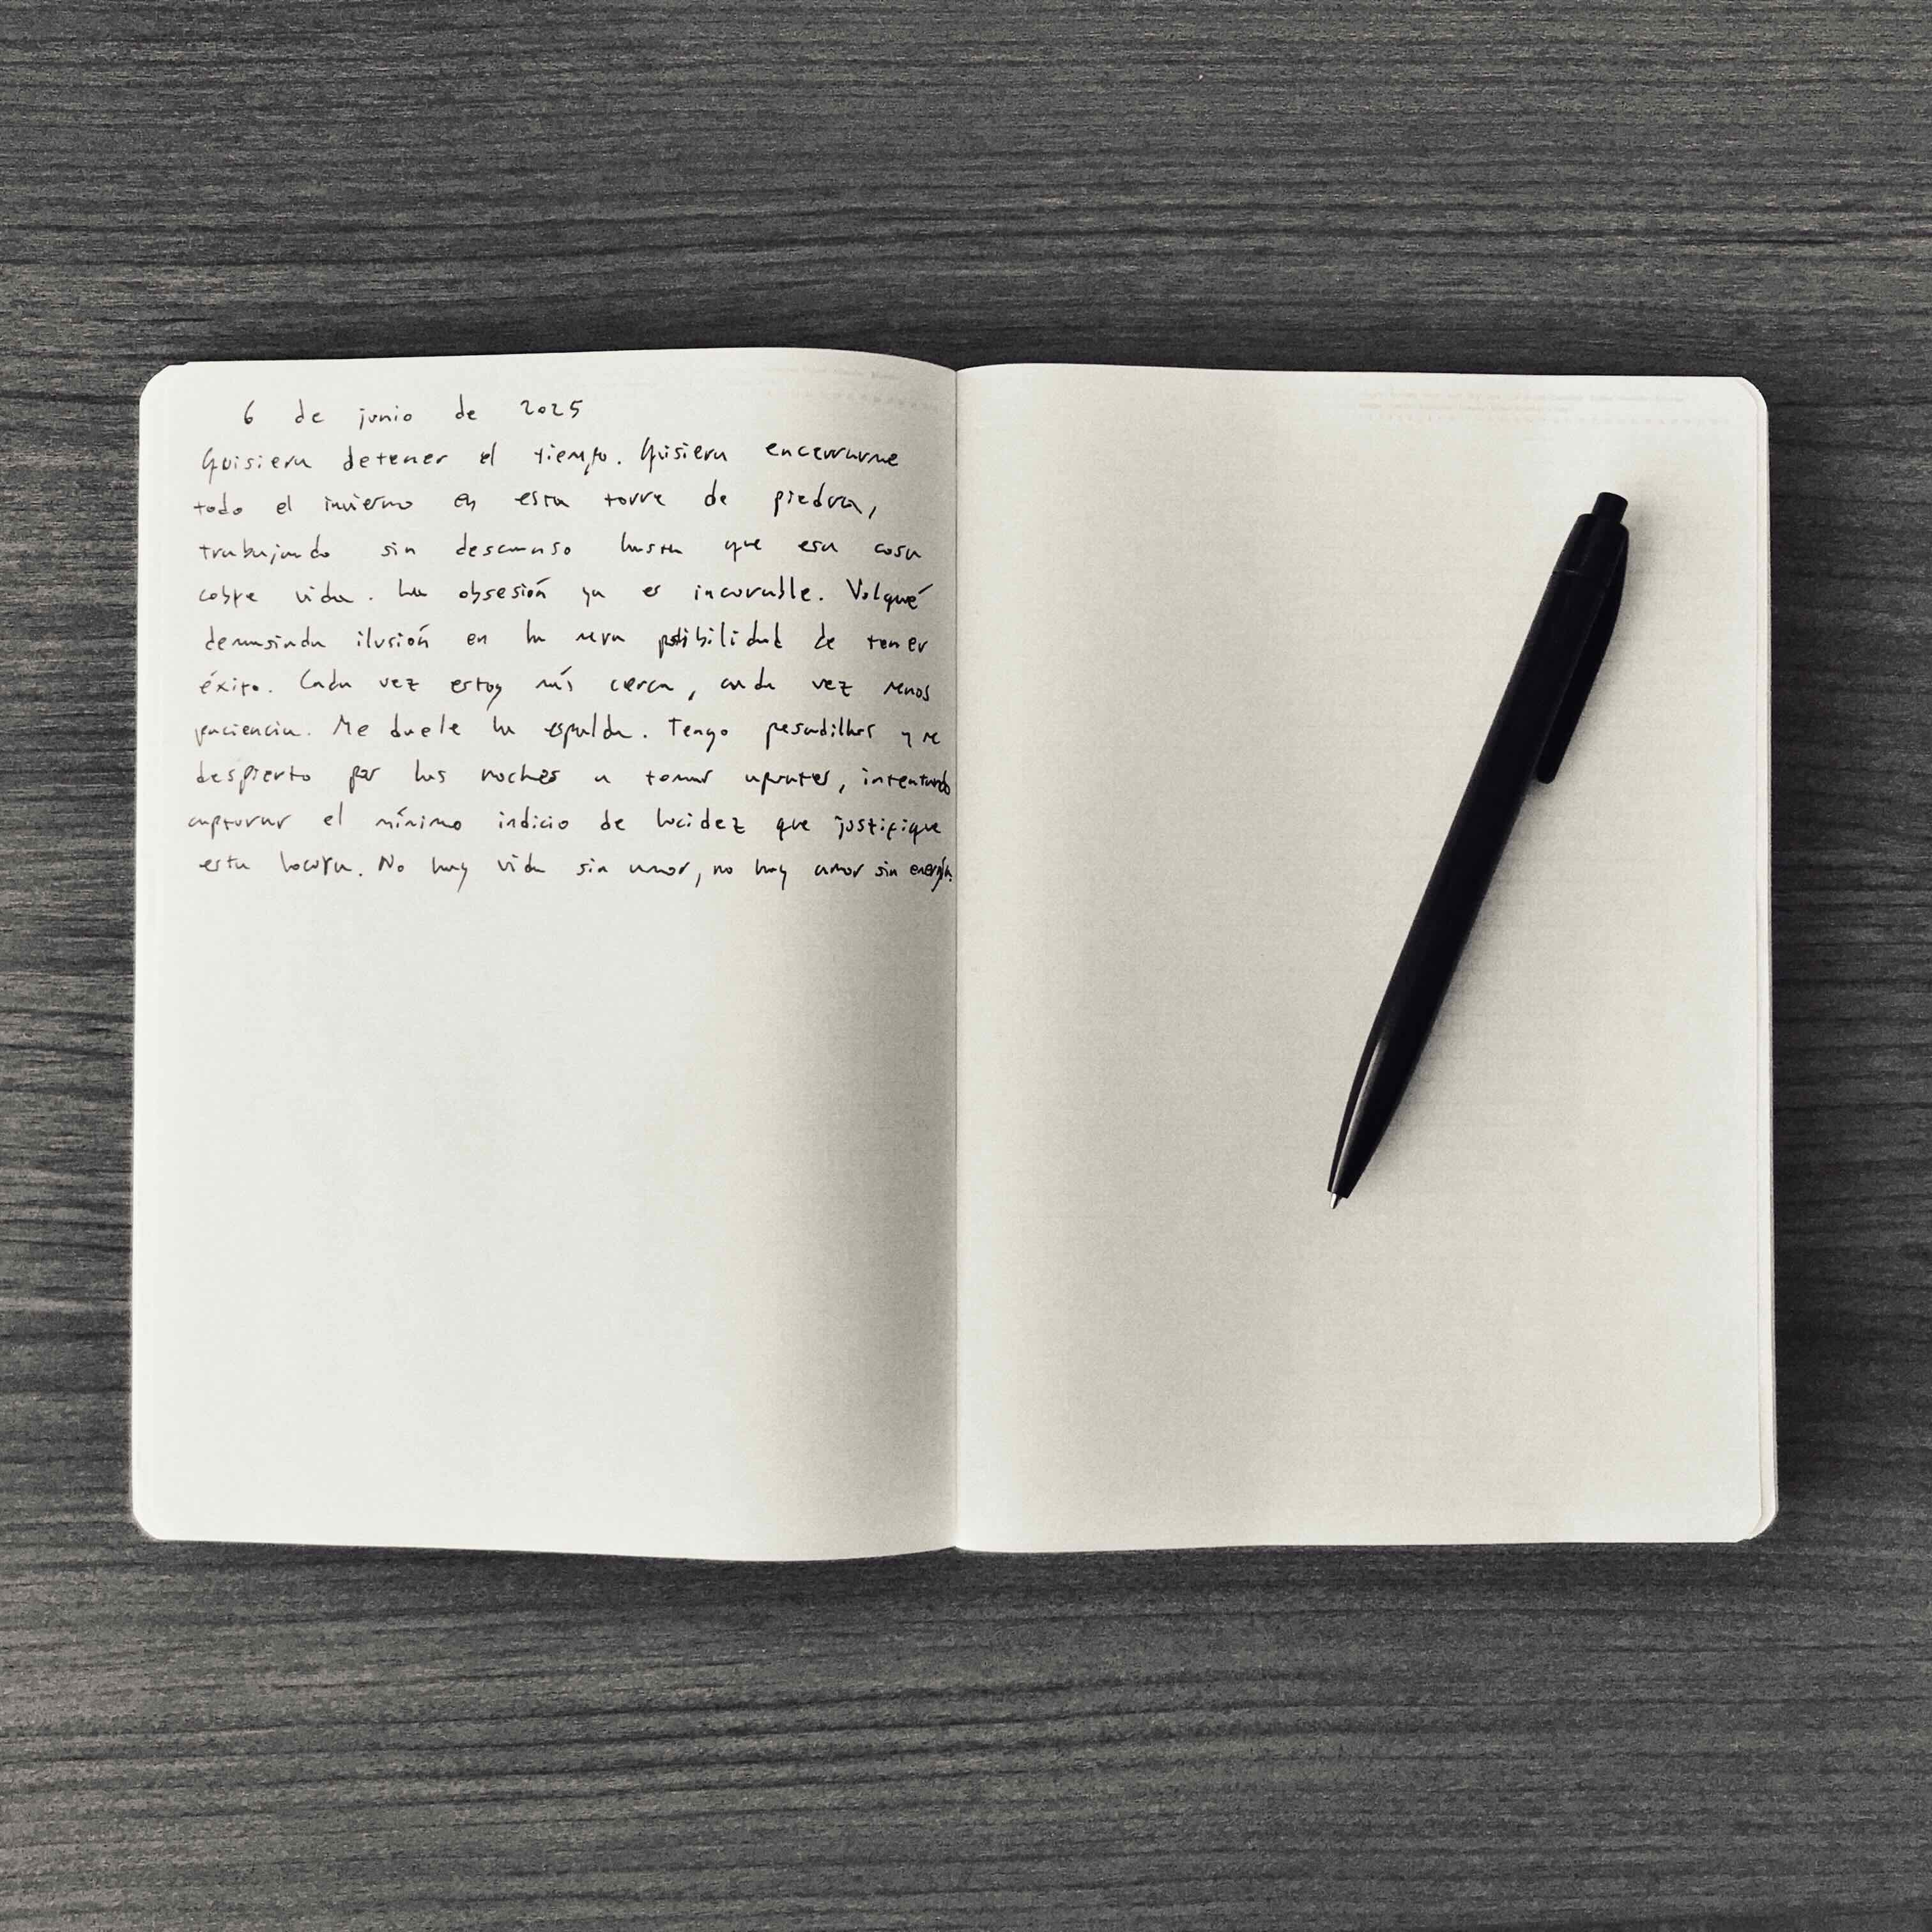 6 de junio de 2025
Quisiera detener el tiempo. Quisiera encerrarme
todo el invierno en esta torre de piedra,
trabajando sin descanso hasta que esa cosa
cobre vida. La obsesión ya es incurable. Volqué
demasiada ilusión en la mera posibilidad de tener
éxito. Cada vez estoy más cerca, cada vez menos
paciencia. Me duele la espalda. Tengo pesadillas y me
despierto por las noches a tomar apuntes, intentando
capturar el mínimo indicio de lucidez que justifique
esta locura. No hay vida sin amor, no hay amor sin energía.